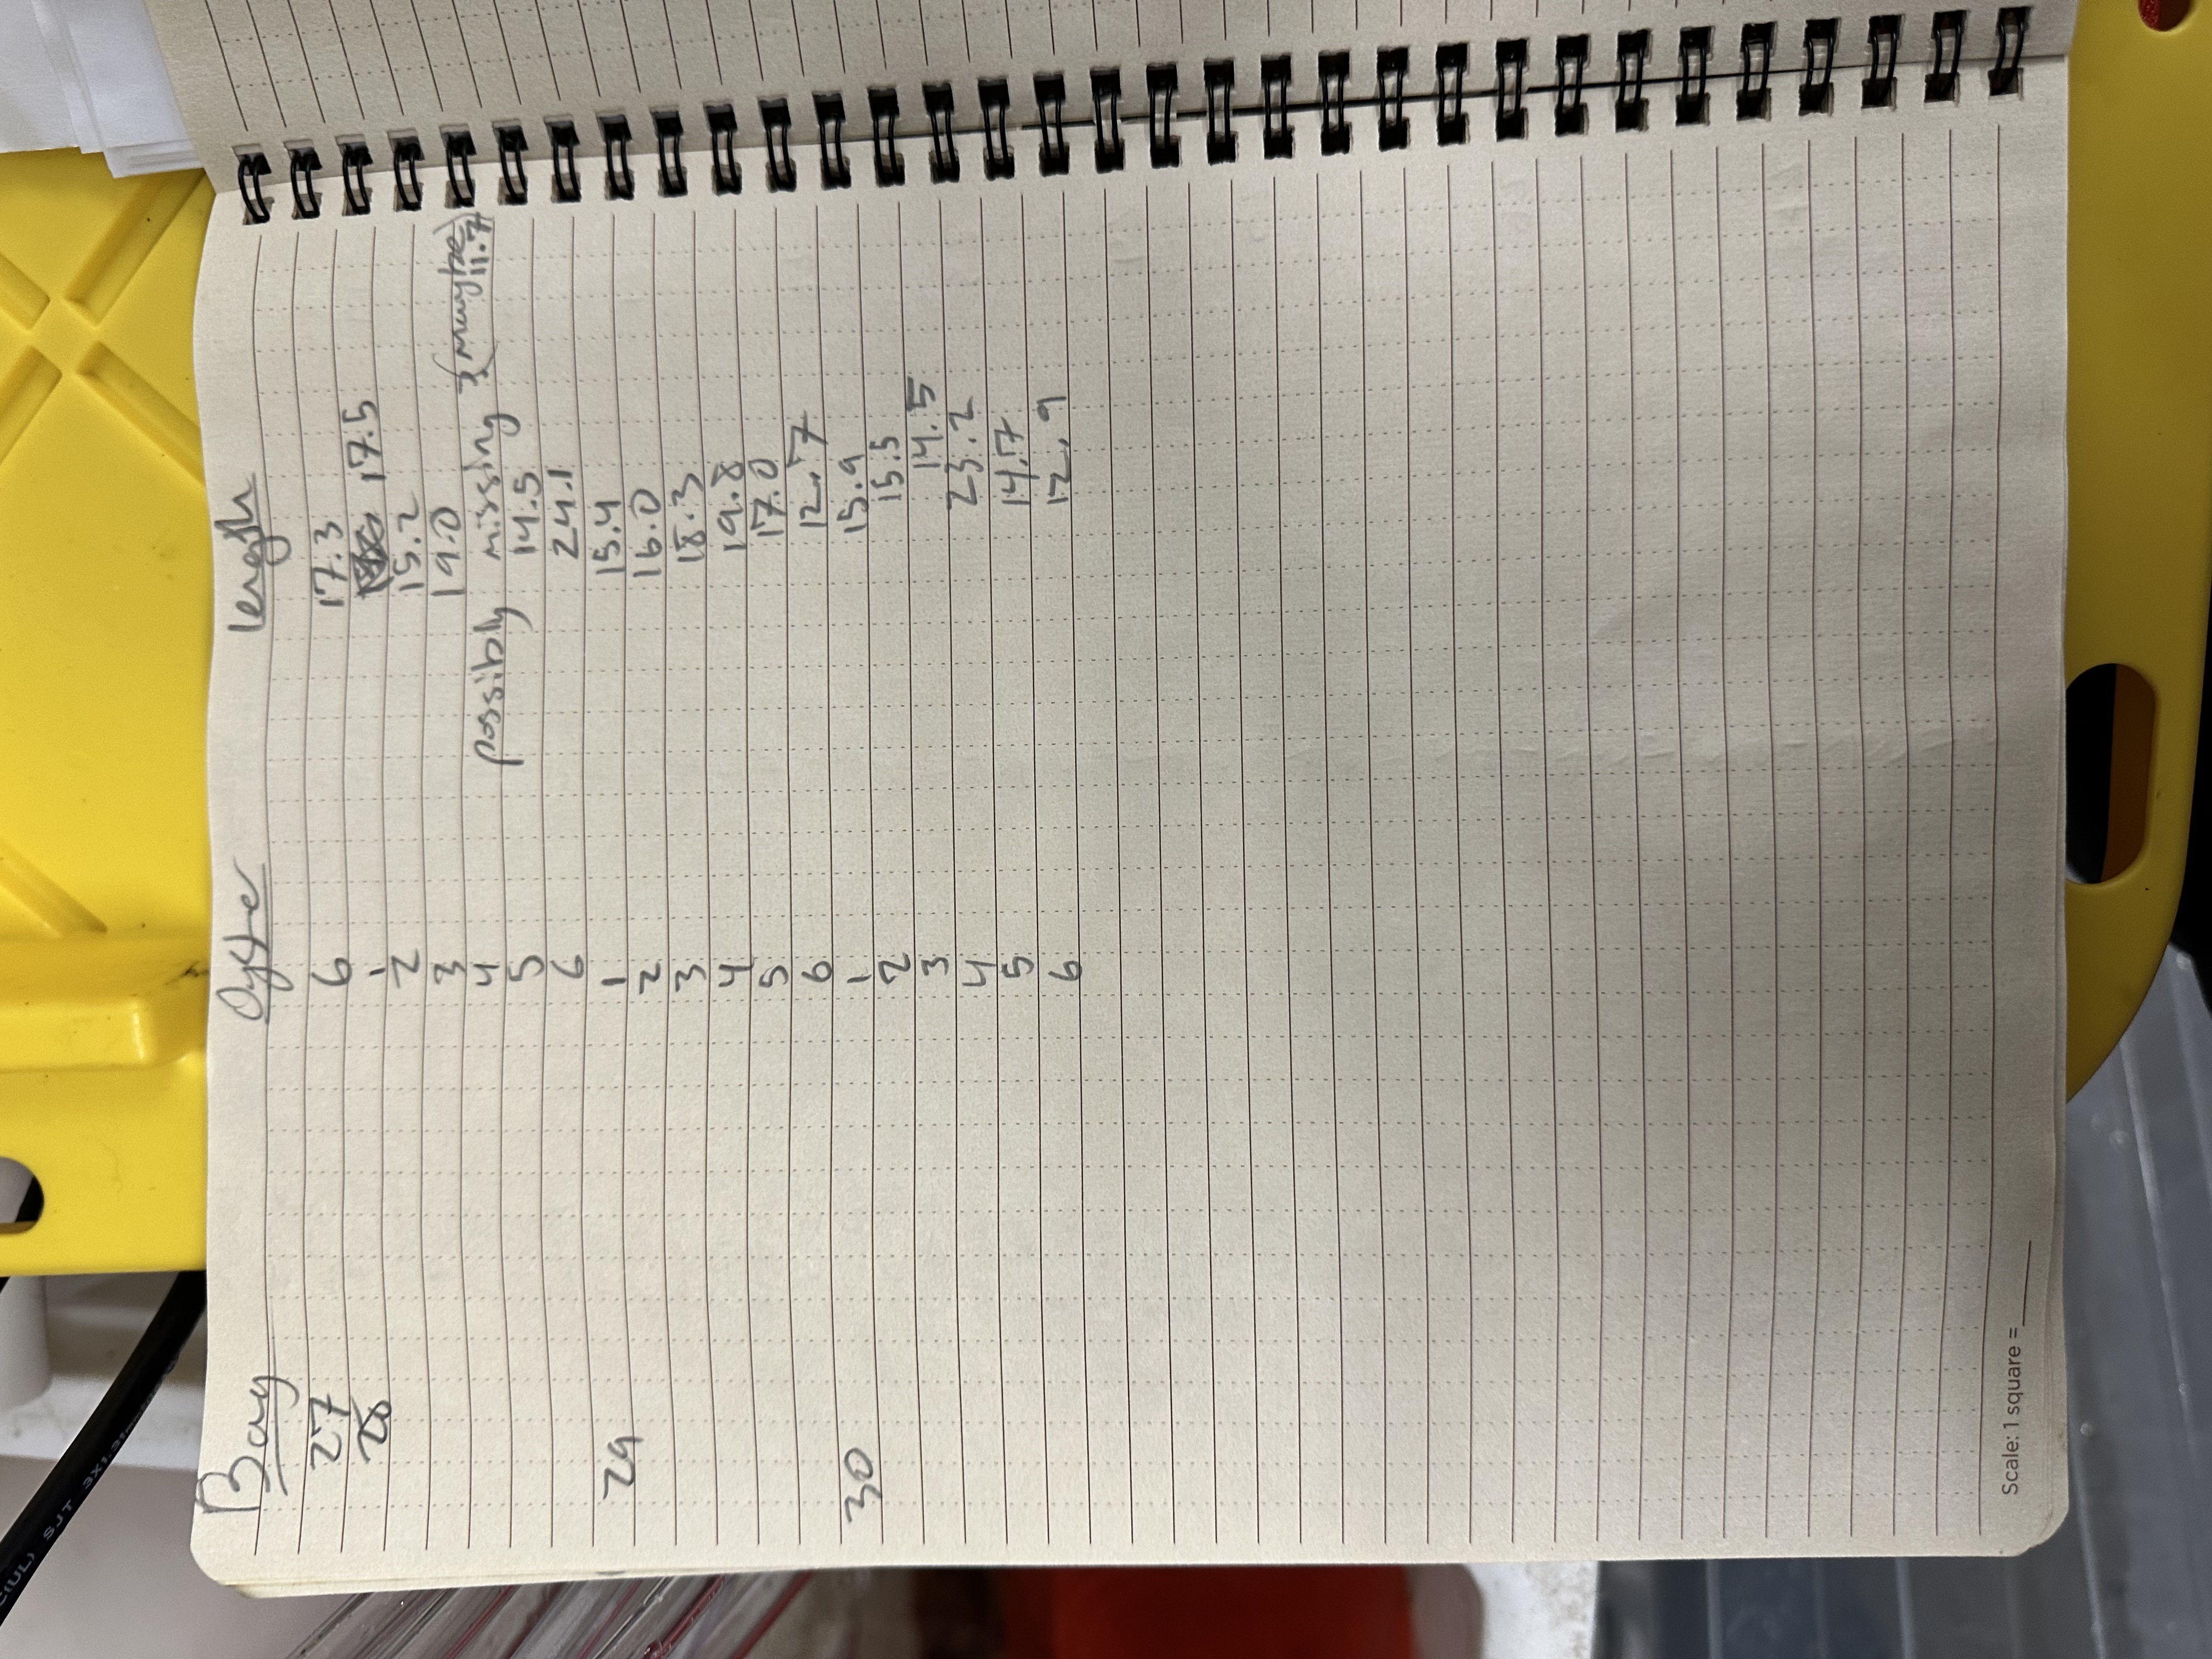 C(UL) SJT 3X1.31mm
Bag Oyster length
27 6 17.3
28 1 17.5
2 15.2
3 19.0
4 possibly missing ? (maybe 11.7)
5 14.5
6 24.1
29 1 15.4
2 16.0
3 18.3
4 19.8
5 17.0
6 12.7
30 1 15.9
2 15.5
3 14.5
4 23.2
5 14.7
6 12.9
Scale: 1 square =______